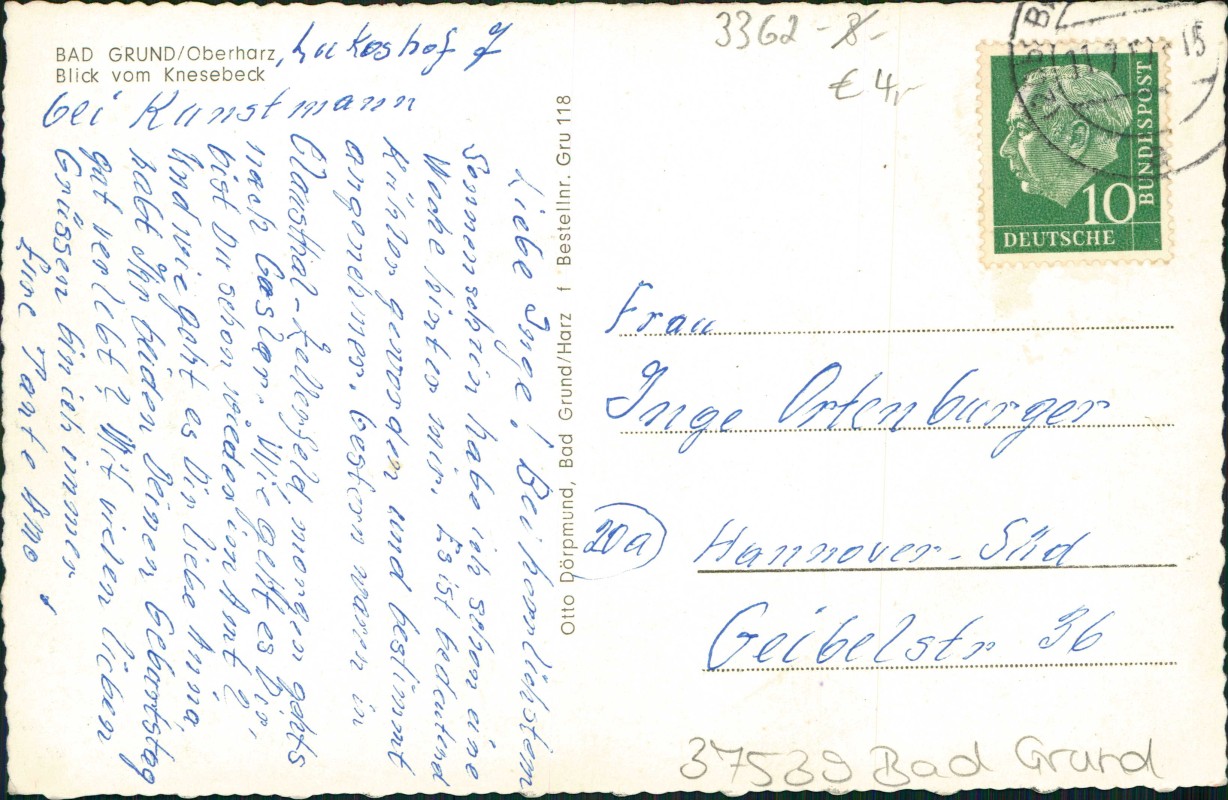 BAD GRUND/Oberharz, Lukashof 7
Blick vom Knesebeck
bei Kunstmann
Liebe Inge! Bei herrlichstem
Sonnenschein habe ich schon eine
Woche hinter mir. Es ist bedeutend
kühler geworden und bestimmt
angenehmer. Gestern waren in
Clausthal-Zellerfeld, morgen gehts
nach Goslar. Wie geht es Dir
bist Du schon wieder im Amt?
Und wie geht es Dir liebe Anna
habt Ihr beiden Deinen Geburtstag
gut verlebt? Mit vielen lieben
Grüssen bin ich immer
Eure Tante
Otto Dörpmund, Bad Grund/Harz f Bestellnr. Gru 118
3362 -8-
€ 4,-
10
DEUTSCHE
BUNDESPOST
15
Frau
Inge Ortenburger
20a Hannover-Süd
Geibelstr 36
37539 Bad Grund